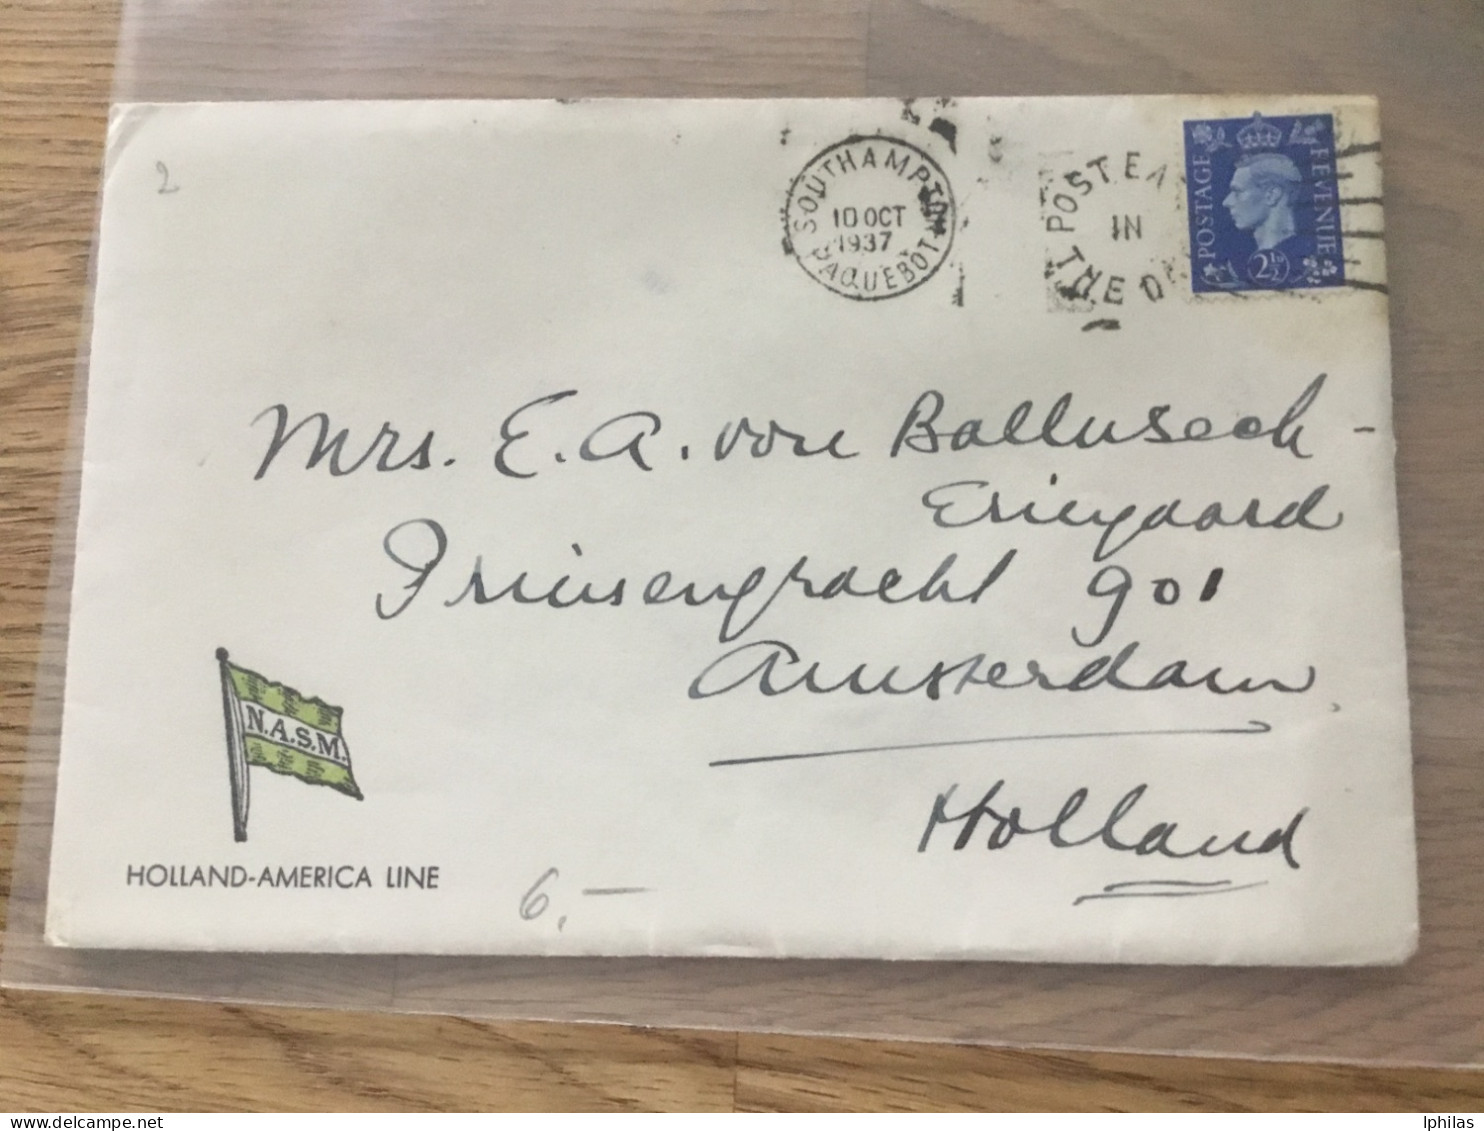 2
SOUTHAMPTON
10 OCT
1937
PAQUEBOT
POST EA
IN
THE D
POSTAGE
REVENUE
2½D
Mrs. E. A. von Balluseck-
Prinsengracht 901
Amsterdam.
Holland
N.A.S.M.
HOLLAND-AMERICA LINE
6,—
lphilas